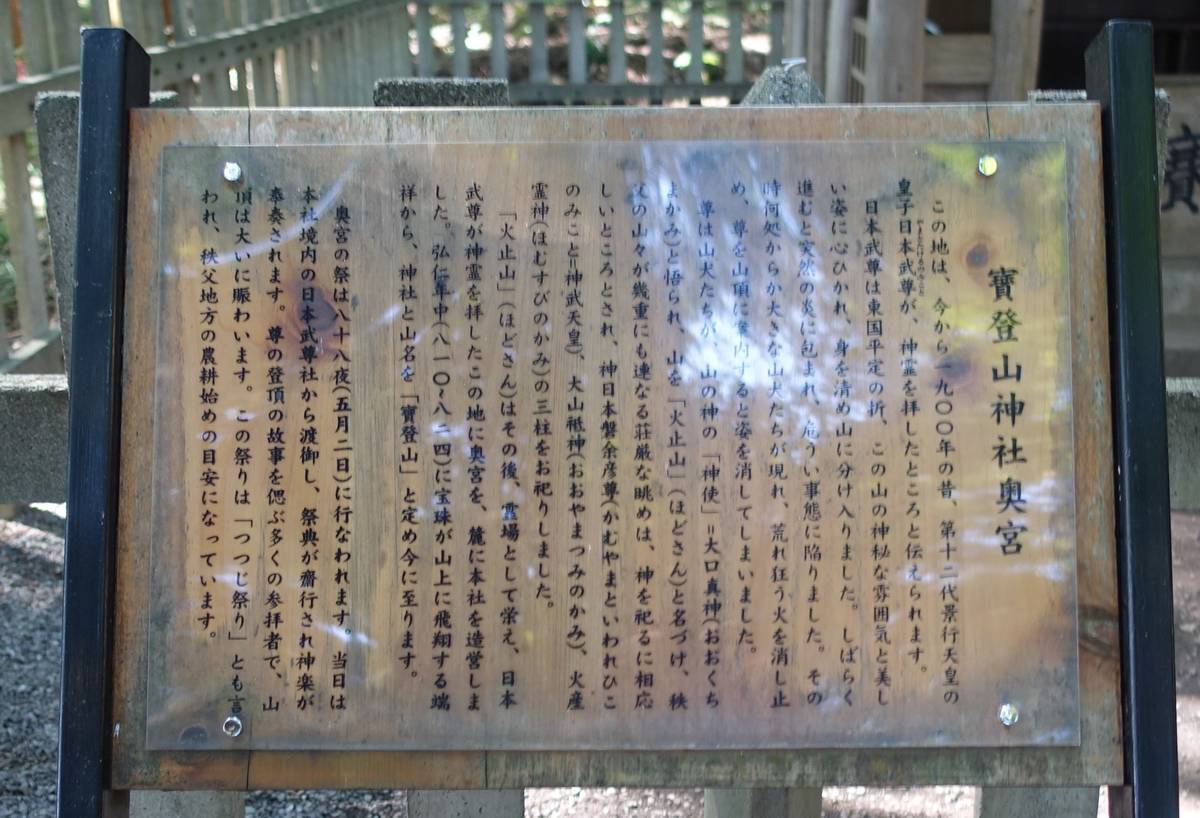 寶登山神社奥宮
この地は、今から一九〇〇年の昔、第十二代景行天皇の
皇子日本武尊が、神霊を拝したところと伝えられます。
やまとたけるのみこと
日本武尊は東国平定の折、この山の神秘な雰囲気と美し
い姿に心ひかれ、身を清め山に分け入りました。しばらく
進むと突然の炎に包まれ、危うい事態に陥りました。その
時何処からか大きな山犬たちが現れ、荒れ狂う火を消し止
め、尊を山頂に案内すると姿を消してしまいました。
尊は山犬たちが、山の神の「神使」＝大口真神(おおくち
まかみ)と悟られ、山を「火止山」(ほどさん)と名づけ、秩
父の山々が幾重にも連なる荘厳な眺めは、神を祀るに相応
しいところとされ、神日本磐余彦尊(かむやまといわれひこ
のみこと＝神武天皇)、大山祗神(おおやまつみのかみ)、火産
霊神(ほむすびのかみ)の三柱をお祀りしました。
「火止山」(ほどさん)はその後、霊場として栄え、日本
武尊が神霊を拝したこの地に奥宮を、麓に本社を造営しま
した。弘仁年中(八一〇〜八二四)に宝珠が山上に飛翔する瑞
祥から、神社と山名を「寶登山」と定め今に至ります。
奥宮の祭は八十八夜(五月二日)に行なわれます。当日は
本社境内の日本武尊社から渡御し、祭典が齋行され神楽が
奉奏されます。尊の登頂の故事を偲ぶ多くの参拝者で、山
頂は大いに賑わいます。この祭りは「つつじ祭り」とも言
われ、秩父地方の農耕始めの目安になっています。
寶